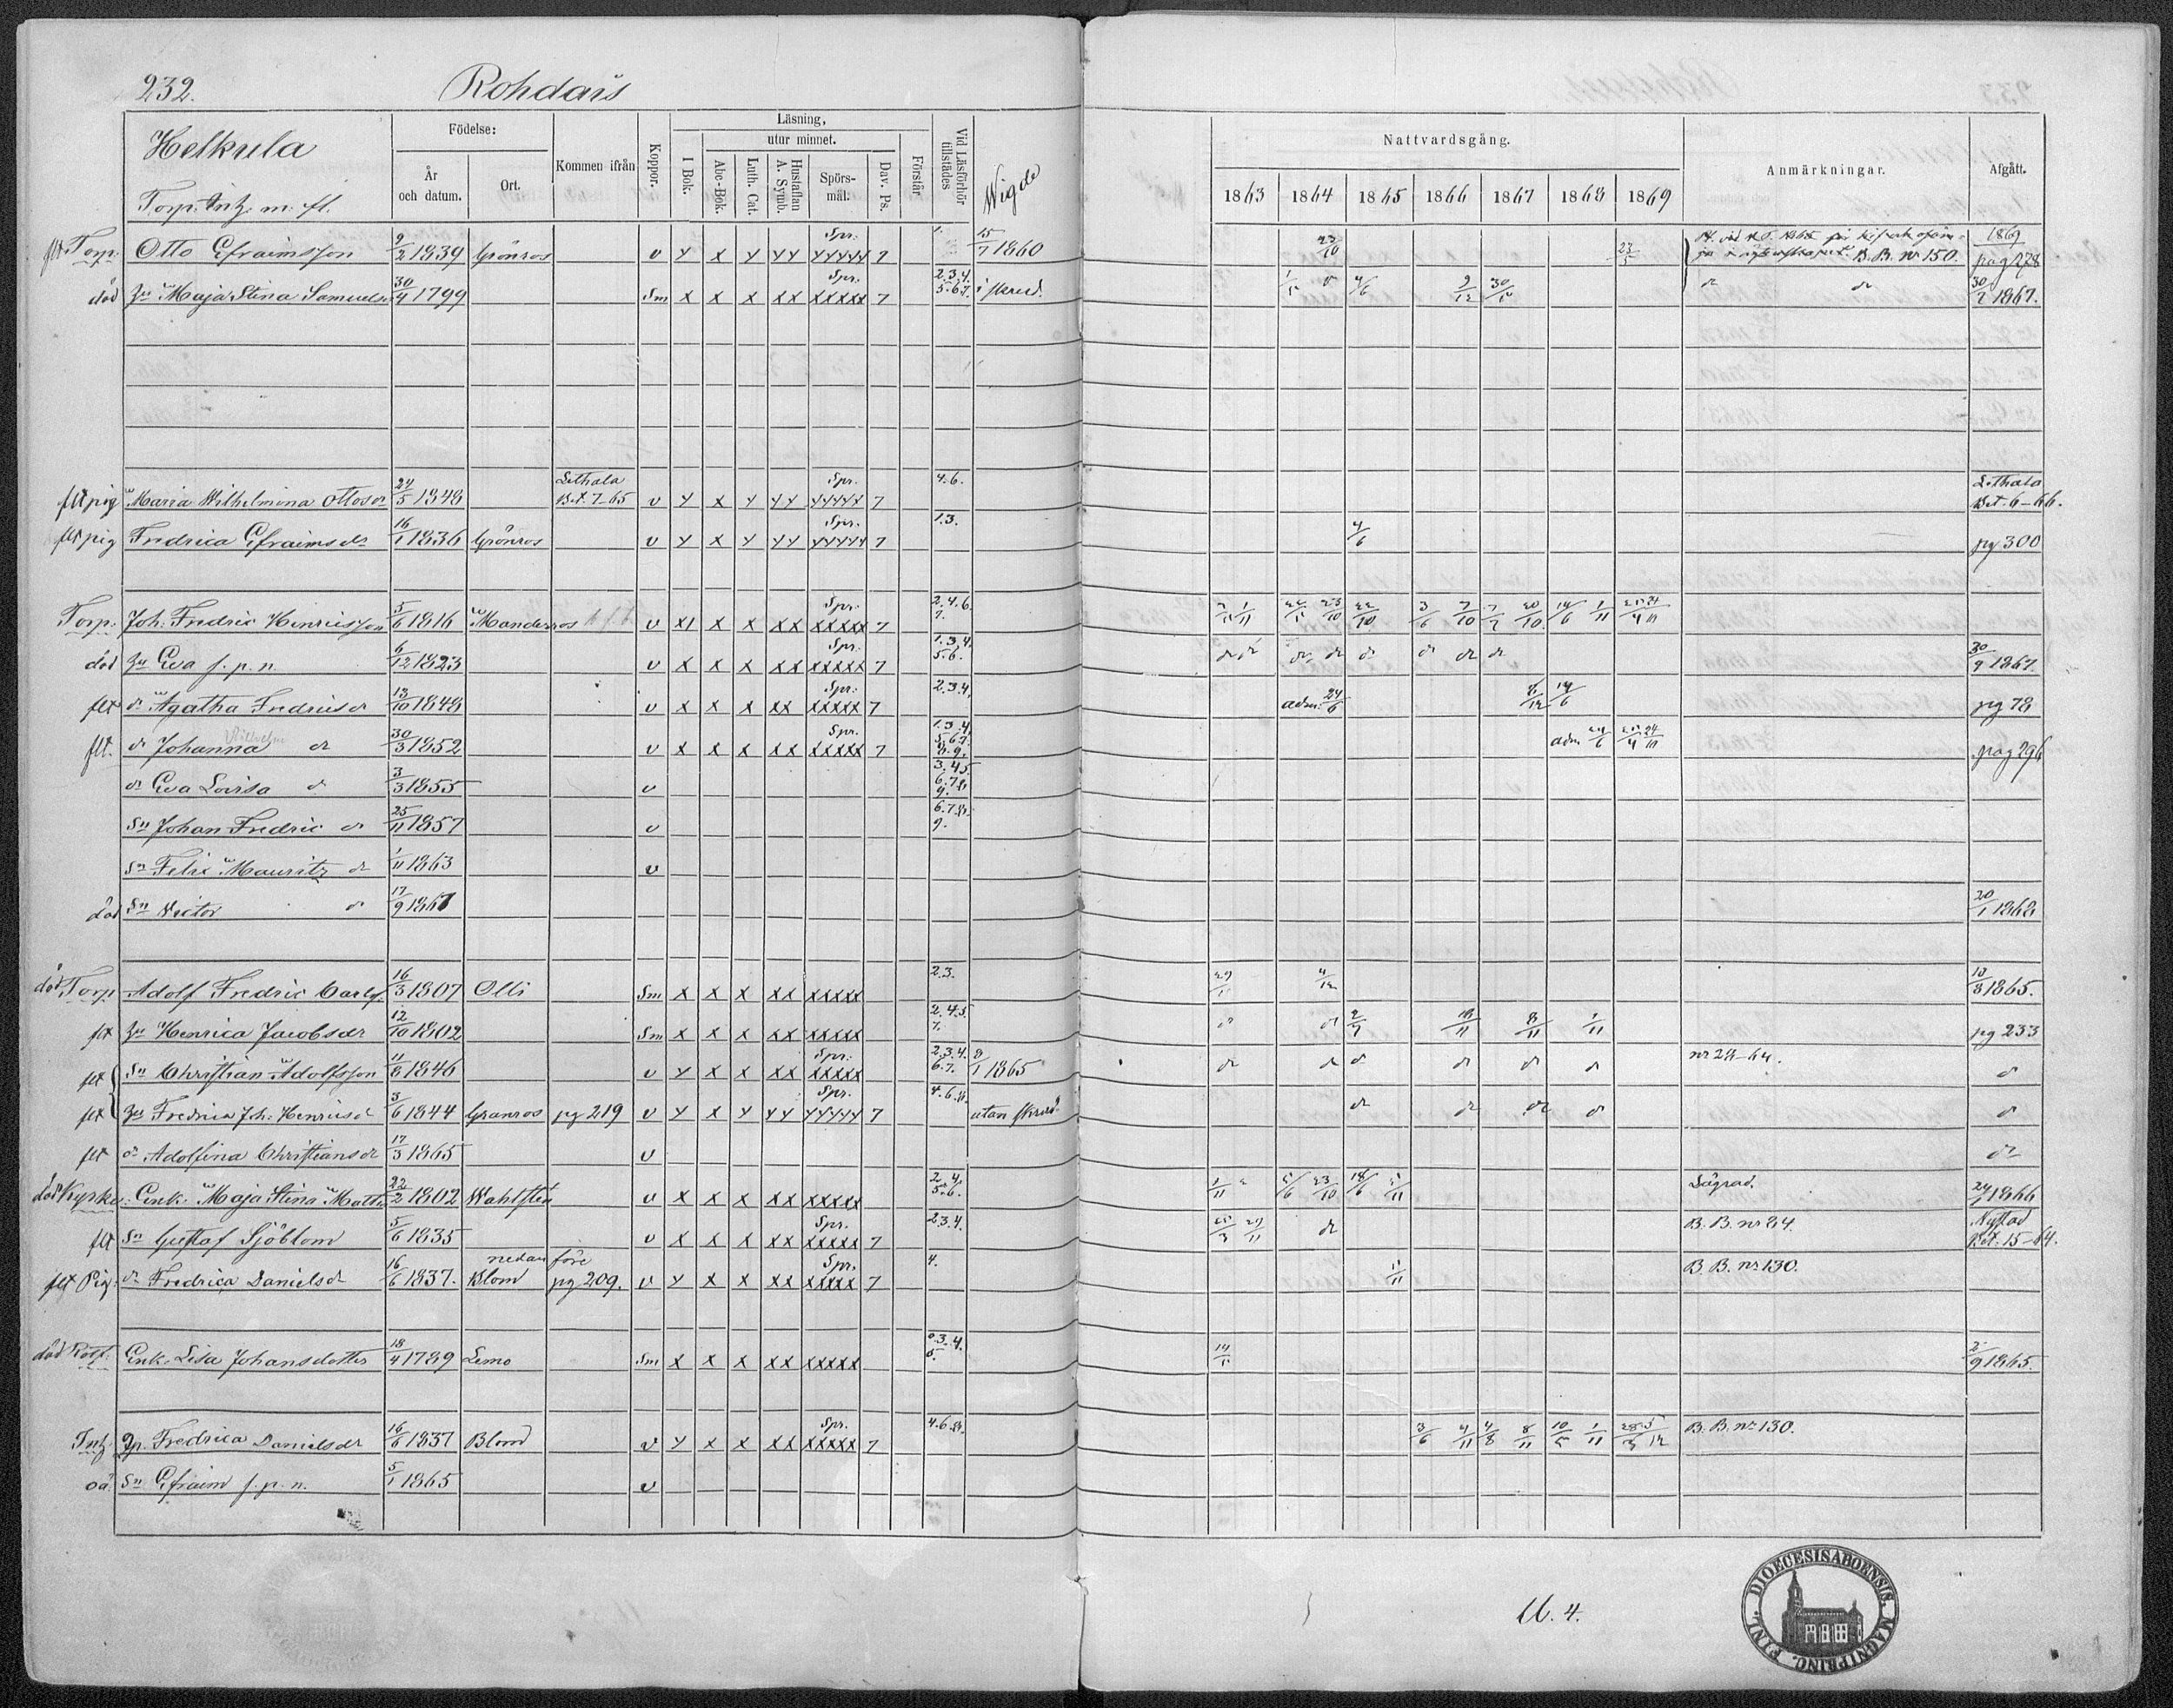 232. Rohdais
Helkula
Torp. Inh. m. fl.
Födelse:
År och datum.
Ort.
Kommen ifrån
Koppor.
Läsning,
I Bok.
utur minnet.
Abc-Bok.
Luth. Cat.
Hustaflan A. Symb.
Spörsmål.
Dav. Ps.
Förstår
Vid Läsförhör tillstädes
Wigde
Nattvardsgång.
1863 1864 1865 1866 1867 1868 1869
Anmärkningar.
Afgått.
flt Torp. Otto Efraimsson 9/2 1839 Grönros v Y X Y YY Spr. YYYYY 7 1. 15/7 1860 23/10 23/5 B. B. nr 150. 1869 pag 278
död Hu Maja Stina Samuels 30/4 1799 Sm X X X XX Spr. XXXXX 7 2.3.4. 5.6.7. i skrud. 30/7 1867.
flt pig Maria Wilhelmina Ottosdr 24/5 1848 Lethala Bet. 7-65 v Y X Y YY Spr. YYYYY 7 4.6. Lethala Bet. 6-66.
flt pig Fredrica Efraimsdr 16/1 1836 Grönros v Y X Y YY Spr. YYYYY 7 1.3. 4/6 pg 300
Torp. Joh. Fredric Henricsson 5/6 1816 Manderos v XI X X XX Spr. XXXXX 7 2.4.6. 7.
död Hu Eva f. p. n. 6/12 1823 v X X X XX Spr. XXXXX 7 1.3.4. 5.6. 30/9 1867.
flt dr Agatha Fredricsdr 13/10 1848 v X X X XX Spr. XXXXX 7 2.3.4. adm. 24/6 8/12 14/6 pg 78
flt. dr Johanna Wilhelm dr 30/3 1852 v X X X XX Spr. XXXXX 7 1.3.4. 5.6.7. 8.9. adm 24/6 pag 296
dr Eva Lovisa dr 3/3 1855 v 3.4.5. 6.7.8. 9.
Sn Johan Fredric dr 25/11 1857 v 6.7.8. 9.
Sn Felix Mauritz dr 1/11 1863 v
död Sn Victor dr 17/9 1867 20/1 1868
död Torp Adolf Fredric Carlss. 16/3 1807 Olli Sm X X X XX XXXXX 2.3. 4/12 10/8 1865.
flt Hu Henrica Jacobsdr 12/10 1802 Sm X X X XX XXXXX 2.4.5. 7. 18/11 8/11 1/11 pg 233
flt Sn Christian Adolfsson 11/8 1846 v Y X X XX Spr. XXXXX 2.3.4. 6.7. 8/1 1865 nr 28-64.
flt Hu Fredrica Joh. Henricsdr 3/6 1844 Granros pg 219 v Y X Y YY Spr. YYYYY 7 4.6.8. utan skrud.
flt dr Adolfina Christiansdr 17/3 1865 v
död Kyrkv. Enk. Maja Stina Matts 22/2 1802 Wahlsten v X X X XX XXXXX 2.4. 5.6. 24/1 1866
flt Sn Gustaf Sjöblom 5/6 1835 v X X X XX Spr. XXXXX 7 2.3.4. B. B. nr 84. Nystad Bet. 15-64.
flt Pig. dr Fredrica Danielsdr 16/6 1837. nedanföre Blom pg 209. v Y X X XX Spr. XXXXX 7 4. B. B. nr 130.
död Enk. Lisa Johansdotter 18/4 1789 Lemo Sm X X X XX XXXXX 3.4. 5. 2/9 1865.
Inh. Qp. Fredrica Danielsdr 16/6 1837 Blom v Y X X XX Spr. XXXXX 7 4.6.8. 3/6 4/11 4/8 8/11 10/5 1/11 B. B. nr 130.
oä Sn Efraim f. p. n. 5/1 1865 v
U. 4.
DIOECESIS ABOENSIS. MAGNI PRINC. FINL.